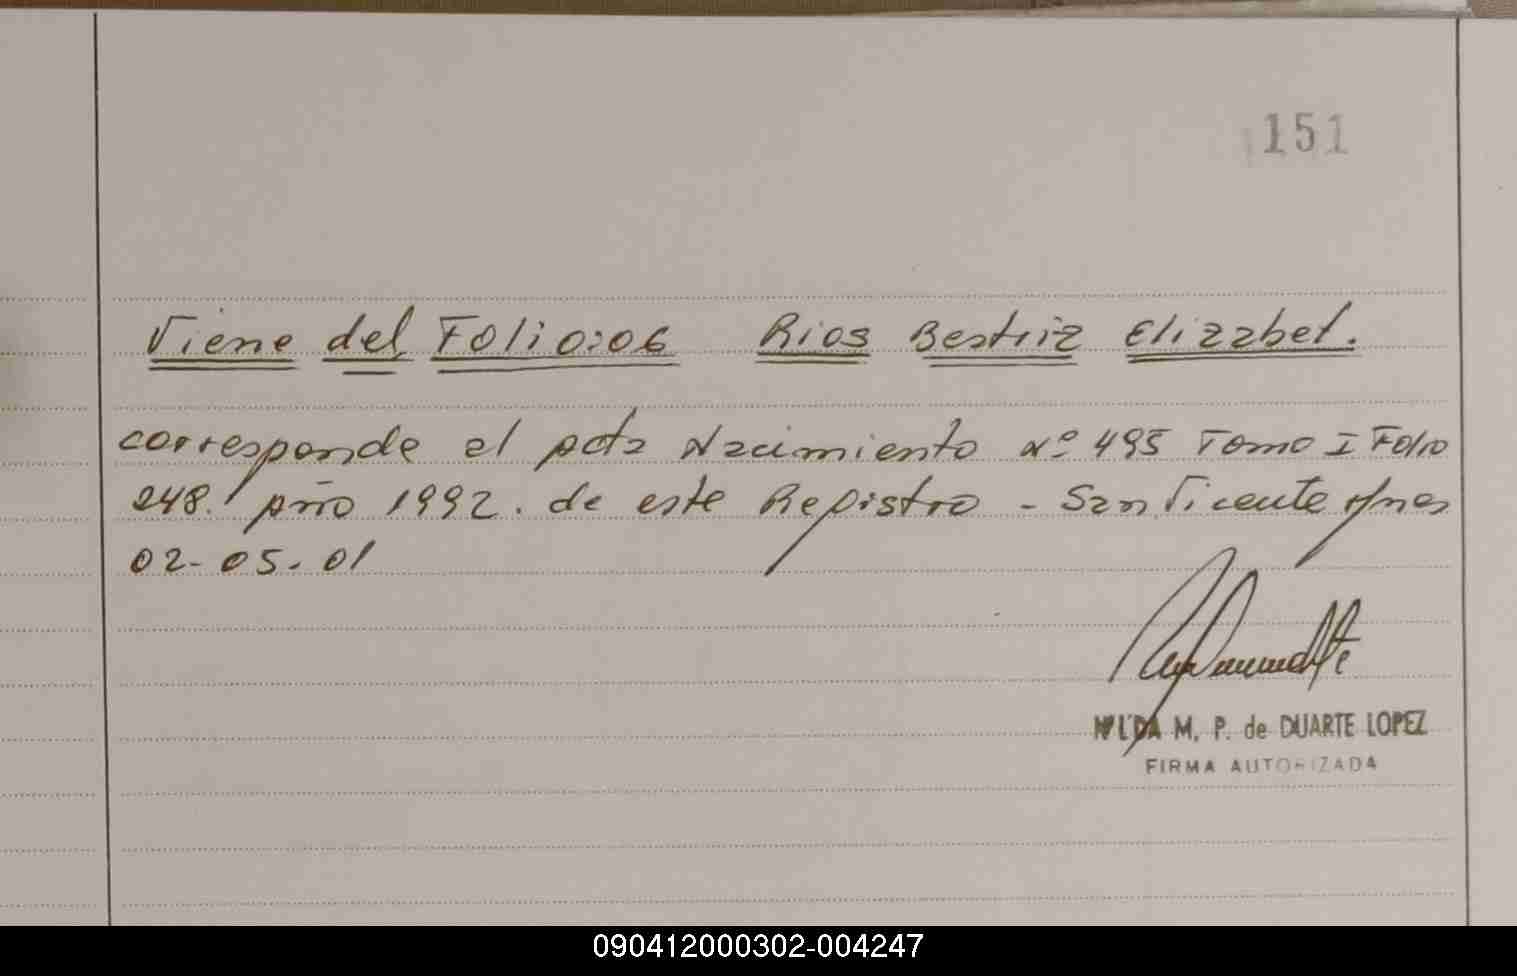 151
Viene del Folio:06 Rios Beatriz Elizabet.
corresponde al acta Nacimiento Nº 495 Tomo I Folio
248. año 1992. de este Registro - San Vicente Mnes
02-05-01
NILDA M. P. de DUARTE LOPEZ
FIRMA AUTORIZADA
090412000302-004247